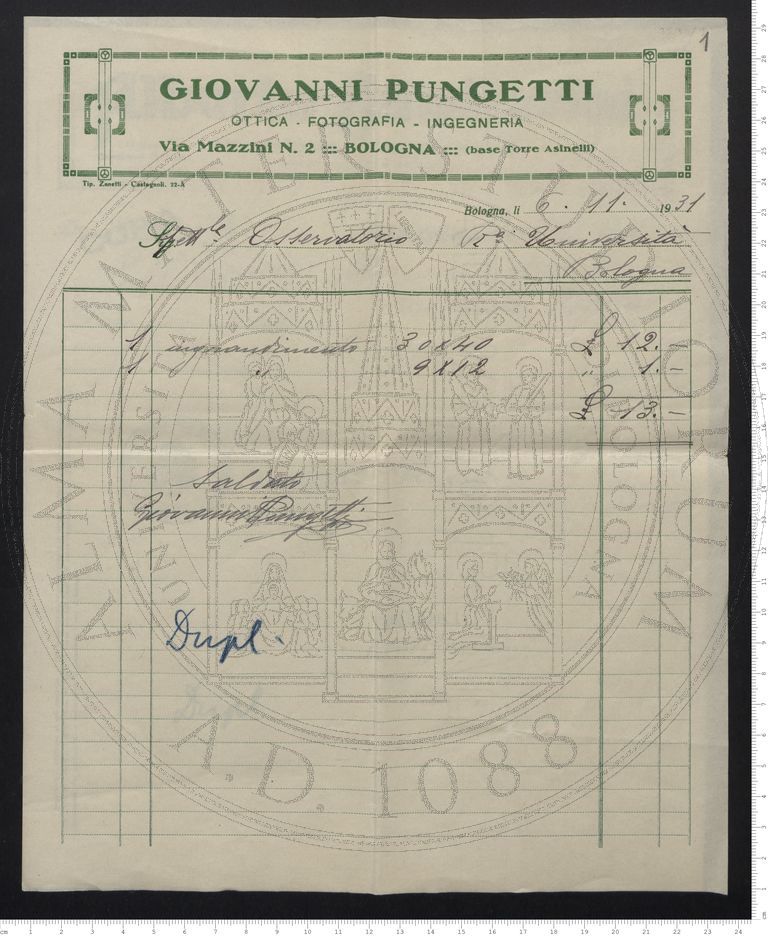 1
GIOVANNI PUNGETTI
OTTICA - FOTOGRAFIA - INGEGNERIA
Via Mazzini N. 2 ::: BOLOGNA ::: (base Torre Asinelli)
Tip. Zanetti - Castagnoli. 22-A
Bologna, li 6. 11. 1931
Spett.le Osservatorio Ra Università
Bologna
1 ingrandimento 30x40 £ 12.-
1 " 9x12 " 1.-
£ 13.-
Saldato
Giovanni Pungetti
Dupl.
Dupl
ALMA MATER STUDIORUM
A.D. 1088